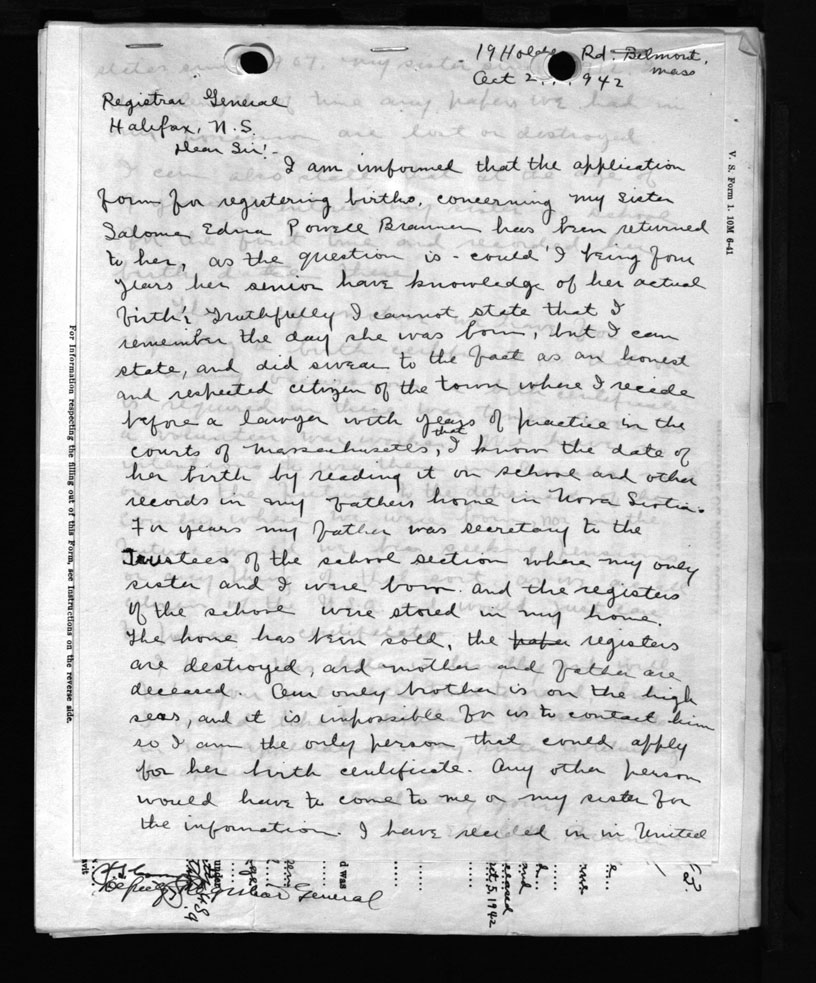 19 Holden Rd. Belmont,
Mass
Oct 2, 1942
Registrar General
Halifax, N.S.
Dear Sir:-
I am informed that the application
form for registering births, concerning my sister
Salome Edna Powell Brannen has been returned
to her, as the question is - could I being four
years her senior have knowledge of her actual
birth? Truthfully I cannot state that I
remember the day she was born, but I can
state, and did swear to the fact as an honest
and respected citizen of the town where I recide
before a lawyer with years of practice in the
courts of Massachusetts, that I know the date of
her birth by reading it on school and other
records in my fathers home in Nova Scotia.
For years my father was secretary to the
Trustees of the school section where my only
sister and I were born. and the registers
of the school were stored in my home.
The home has been sold, the paper registers
are destroyed, and mother and father are
deceased. Our only brother is on the high
seas, and it is impossible for us to contact him
so I am the only person that could apply
for her birth certificate. Any other person
would have to come to me or my sister for
the information. I have recided in in United
V. S. Form 1. 10M 6-41
For Information respecting the filling out of this Form, see Instructions on the reverse side.
Deputy Registrar General
under
d was
deceased
Oct. 5, 1942